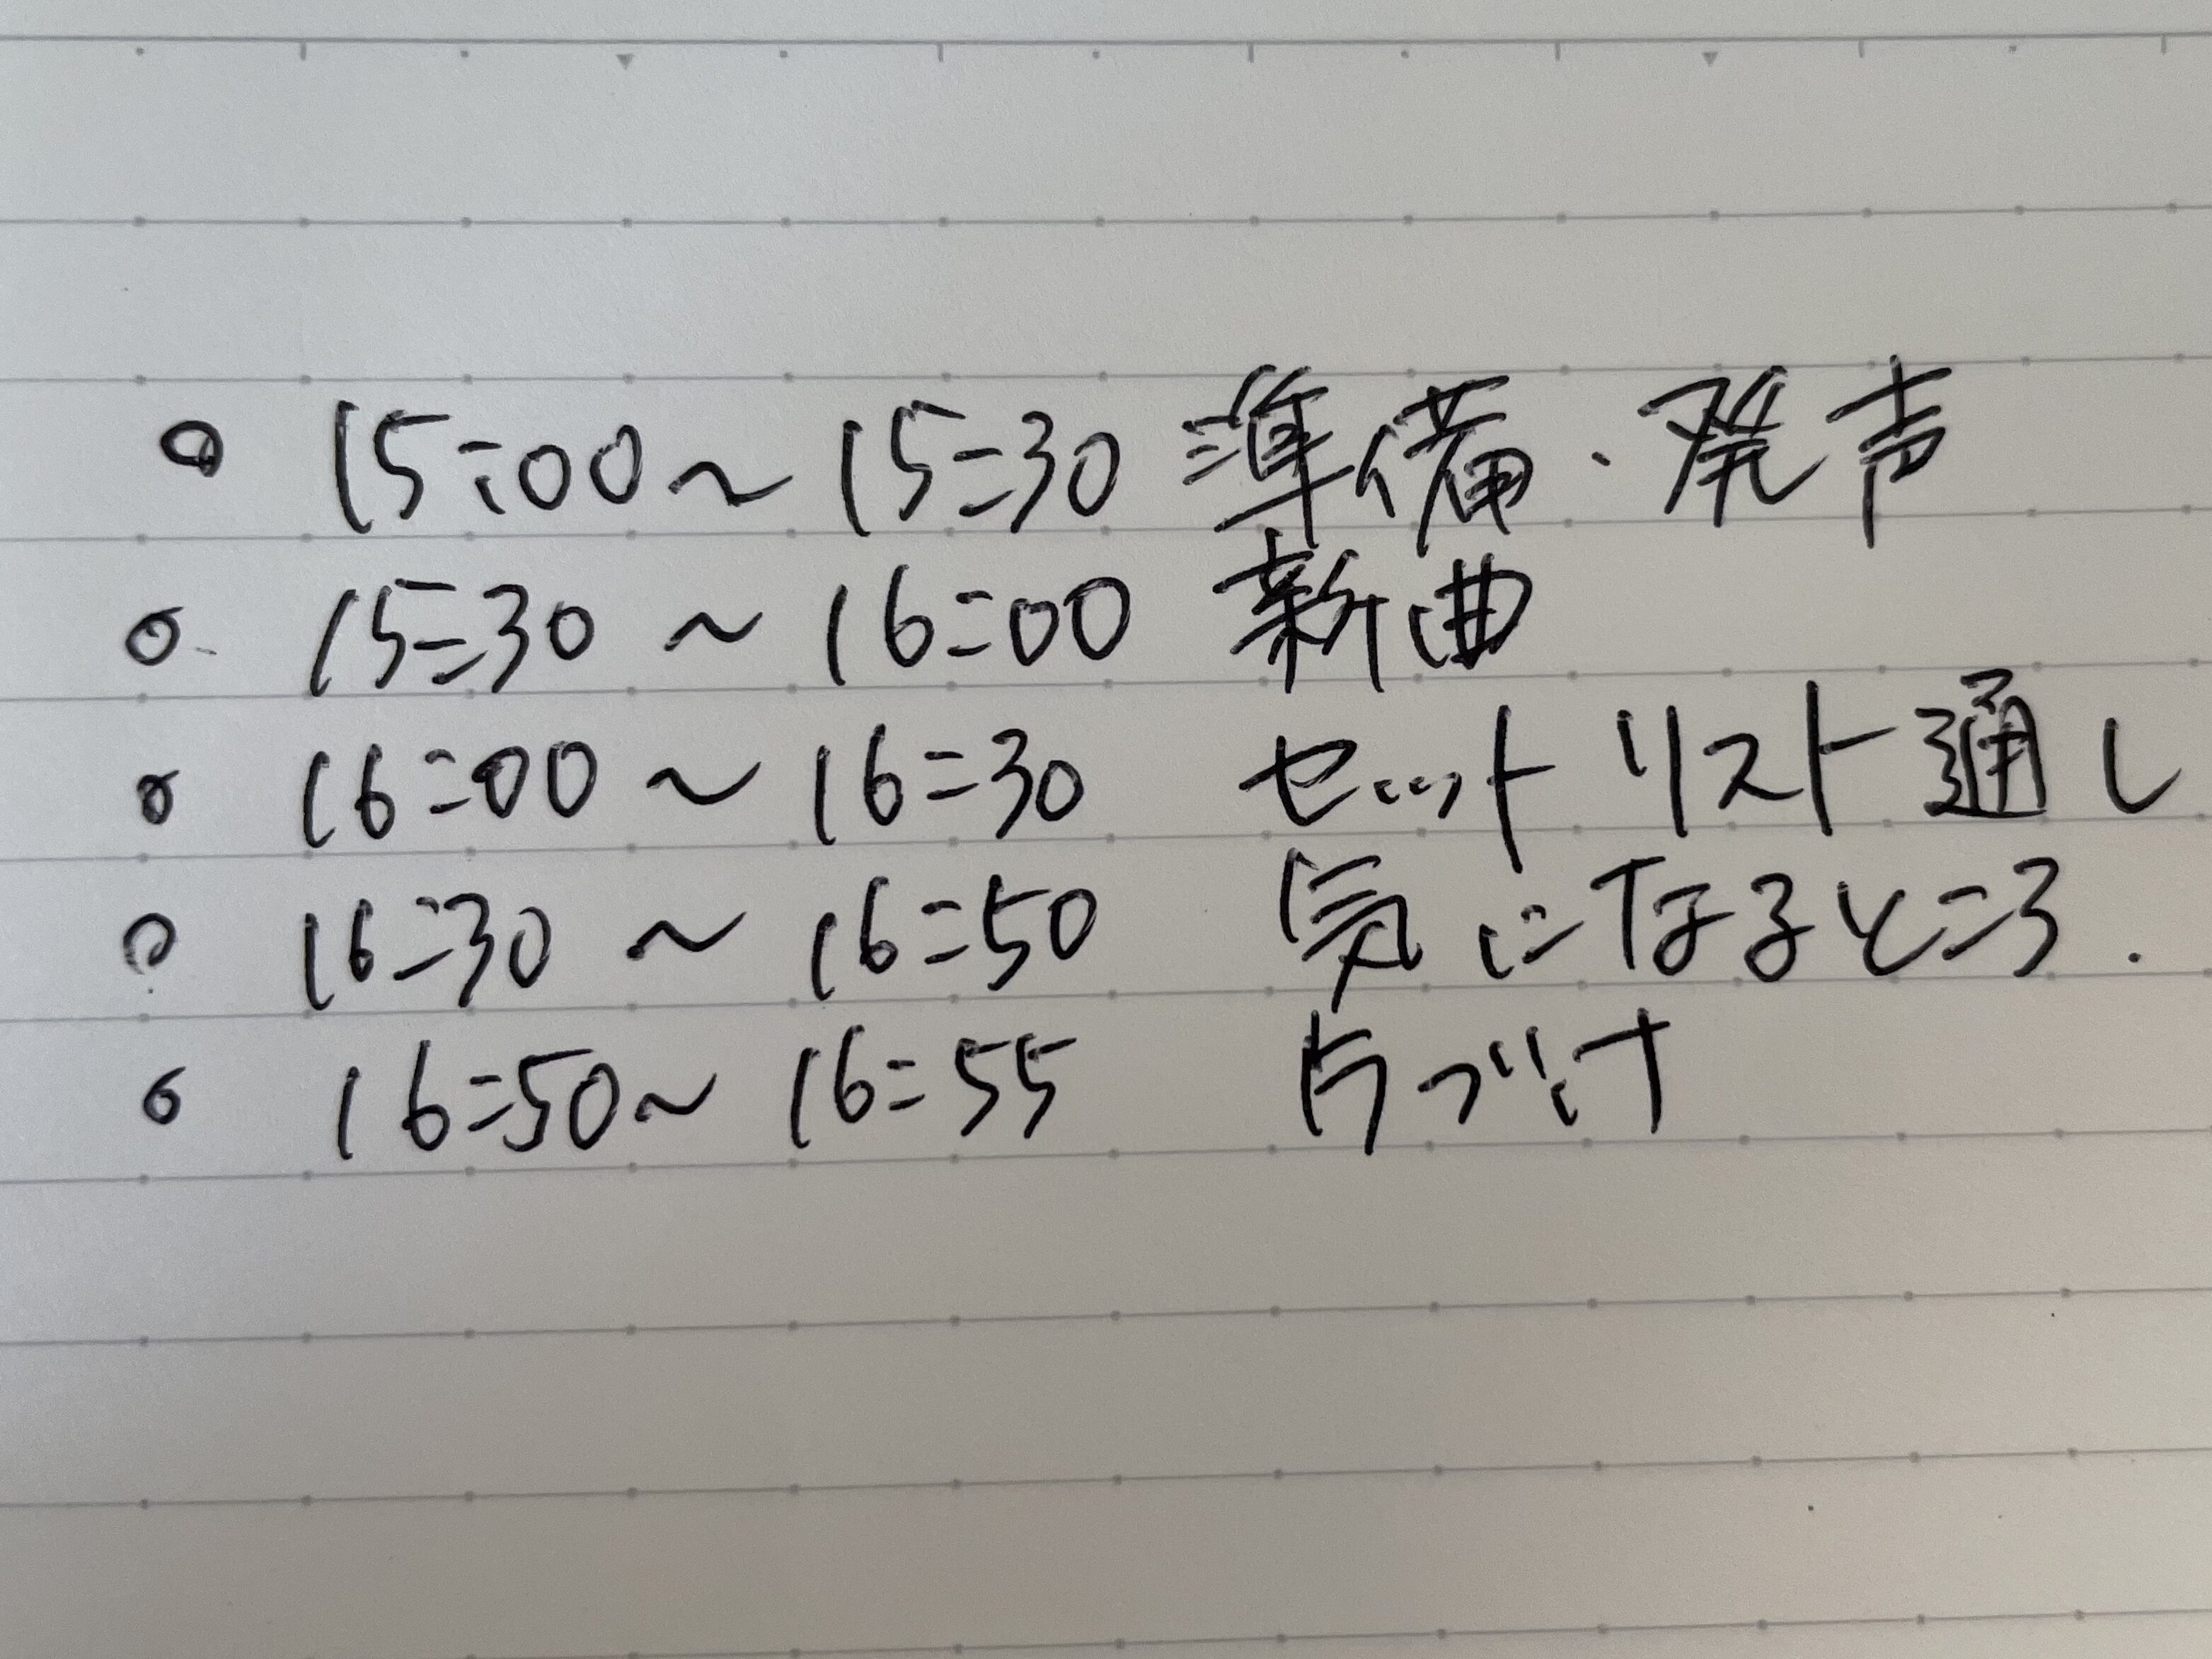 ○ 15:00～15:30 準備・発声
○ 15:30～16:00 新曲
○ 16:00～16:30 セットリスト通し
○ 16:30～16:50 気になるところ.
○ 16:50～16:55 片づけ